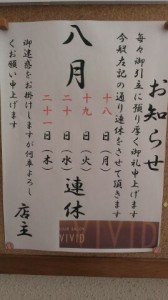 お知らせ
毎々御引立に預り厚く御礼申上げます
今般左記の通り連休をさせて頂きます
八月
十八日(月)
十九日(火)
二十日(水)
二十一日(木)
連休
御迷惑をお掛けしますが何卒よろし
くお願い申上げます
店主
VIVID